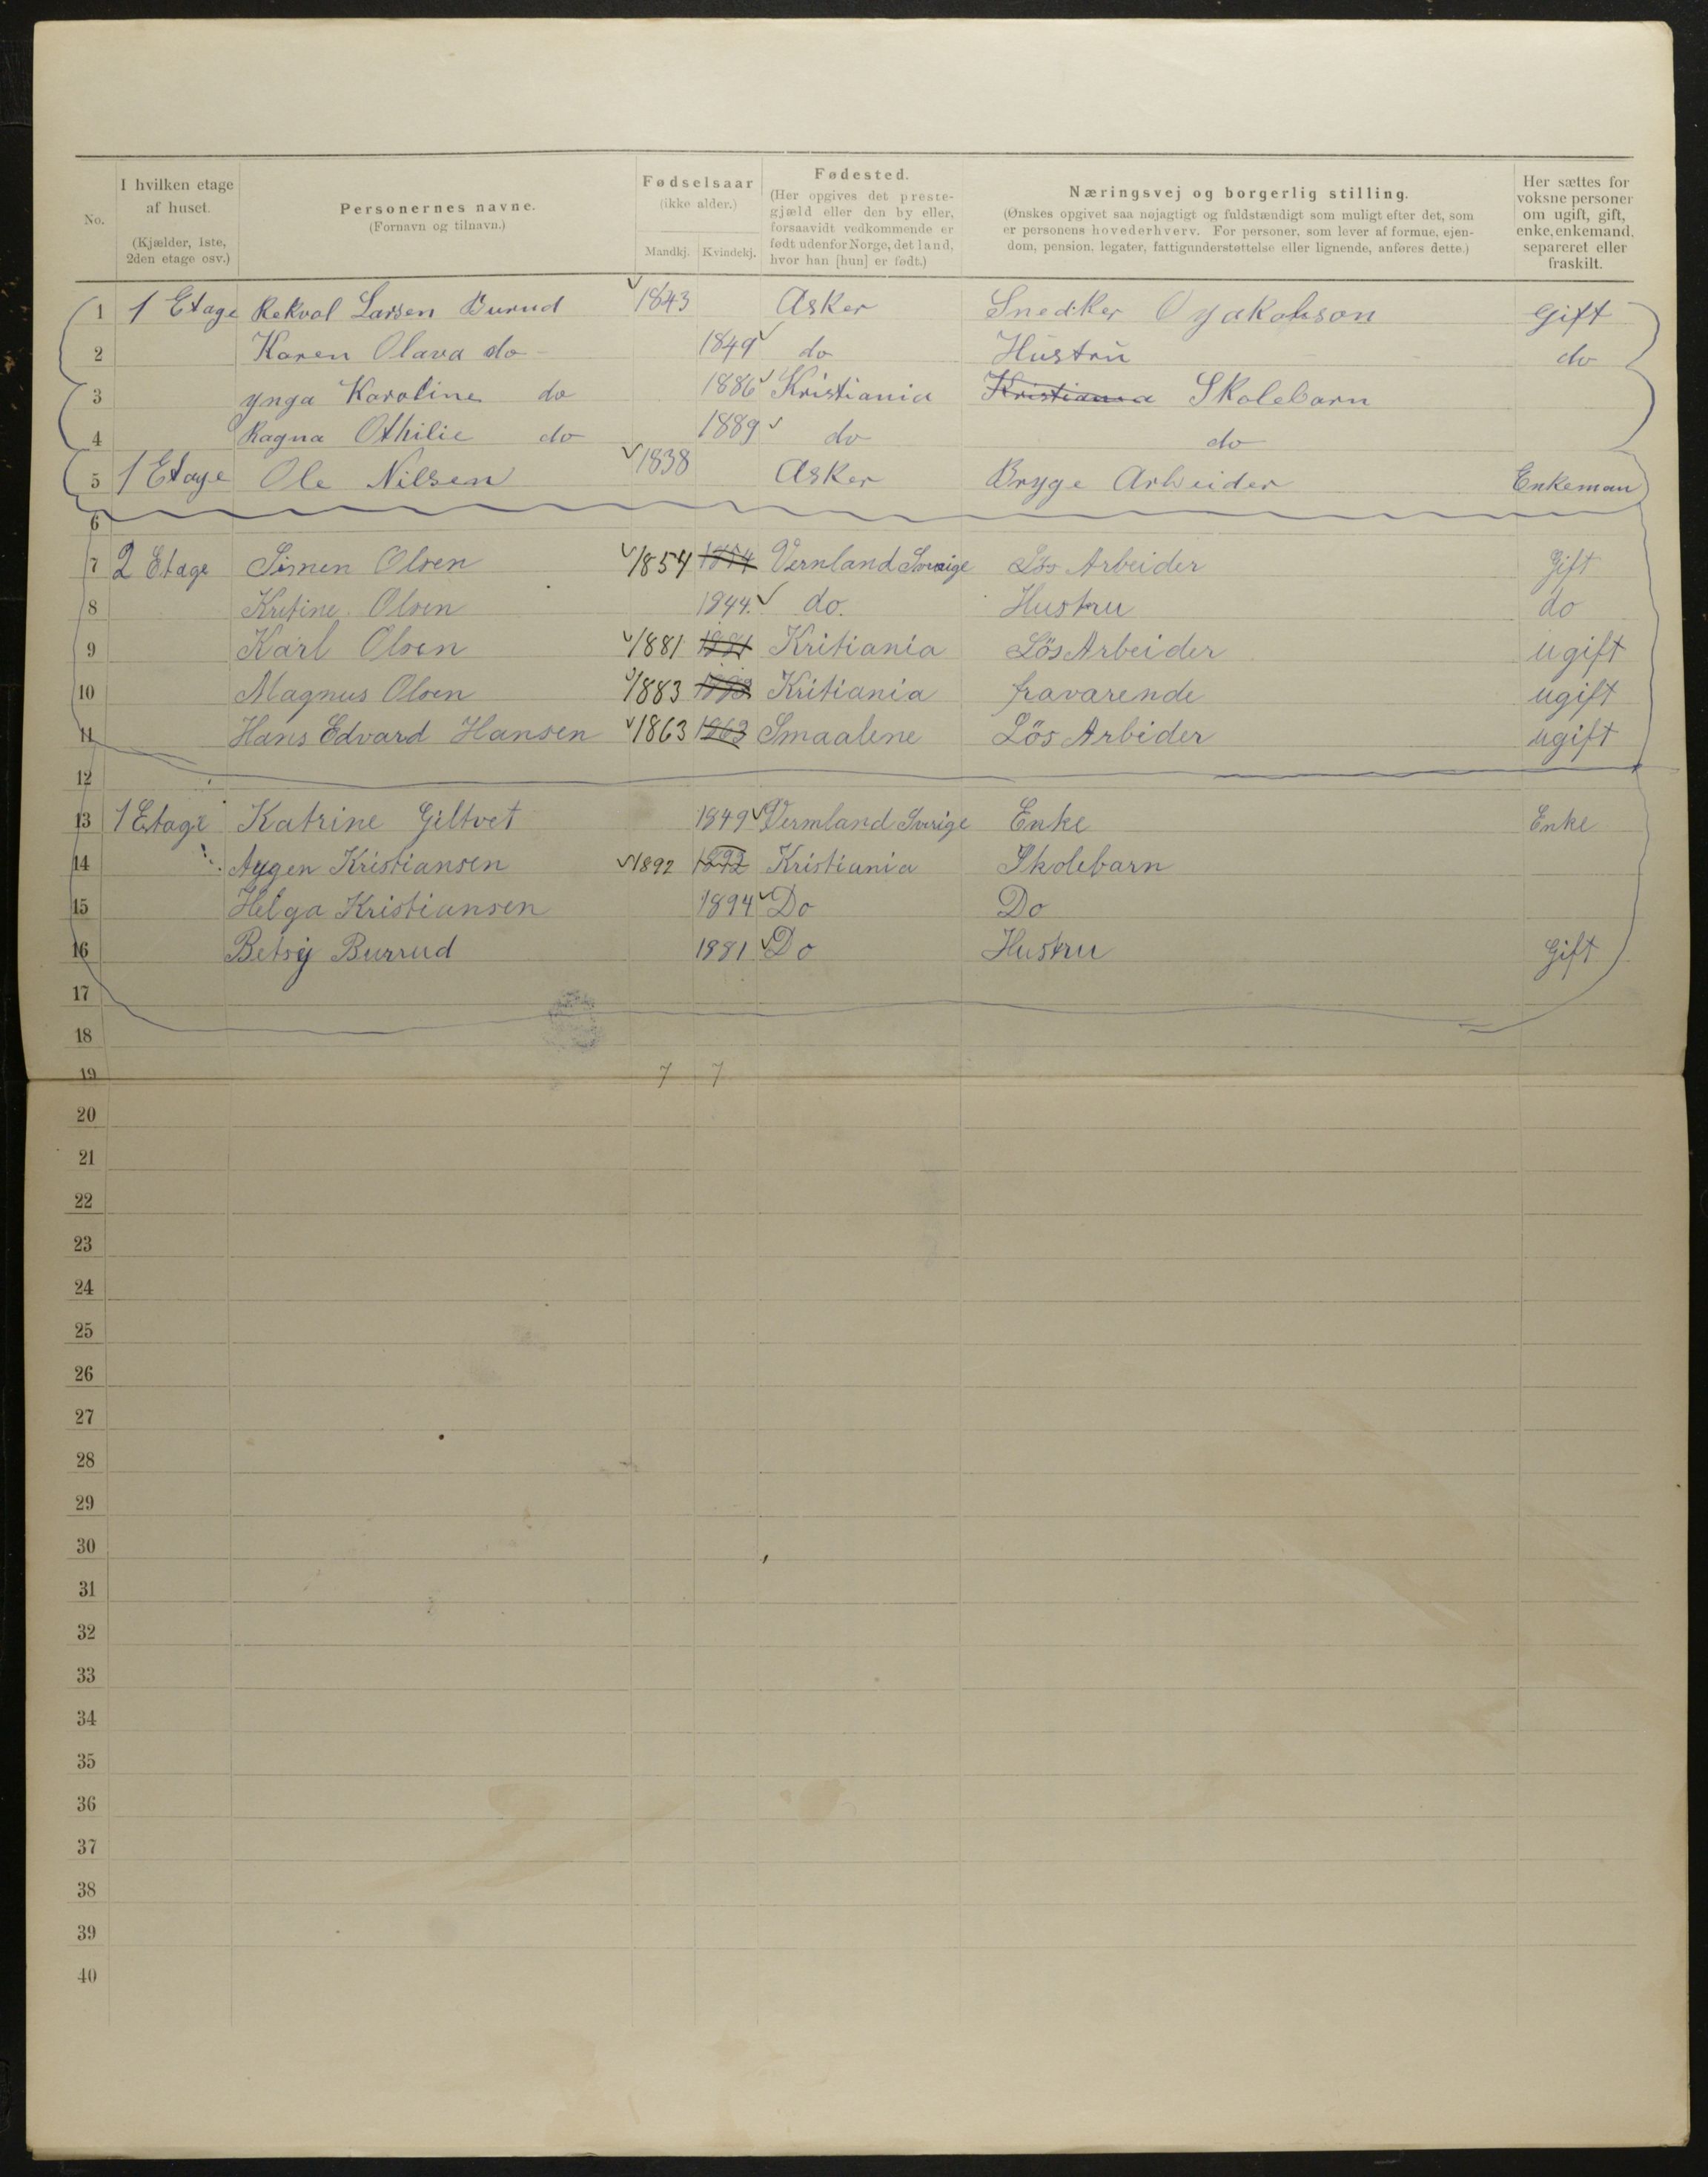 No. | I hvilken etage af huset. (Kjælder, 1ste, 2den etage osv.) | Personernes navne. (Fornavn og tilnavn.) | Fødselsaar (ikke alder.) Mandkj. Kvindekj. | Fødested. (Her opgives det prestegjæld eller den by eller, forsaavidt vedkommende er født udenfor Norge, det land, hvor han [hun] er født.) | Næringsvej og borgerlig stilling. (Ønskes opgivet saa nøjagtigt og fuldstændigt som muligt efter det, som er personens hovederhverv. For personer, som lever af formue, ejendom, pension, legater, fattigunderstøttelse eller lignende, anføres dette.) | Her sættes for voksne personer om ugift, gift, enke, enkemand, separeret eller fraskilt.
1 1 Etage Rekvol Larsen Burud 1843 Asker Snedker O Jakobson Gift
2 Karen Olava do 1849 do Hustru do
3 ynga Karoline do 1886 Kristiania Kristiania Skolebarn
4 Ragna Othilie do 1889 do do
5 1 Etage Ole Nilsen 1838 Asker Bryge Arbeider Enkeman
6
7 2 Etage Simen Olsen 1854 1854 Vernland Sverige Lös Arbeider Gift
8 Kretine Olsen 1844. do. Hustru do
9 Karl Olsen 1881 1881 Kritiania Lös Arbeider ugift
10 Magnus Olsen 1883 1883 Kritiania fravarende ugift
11 Hans Edvard Hansen 1863 1863 Smaalene Lös Arbider ugift
12
13 1 Etage Katrine Giltvet 1849 Vermland Sverige Enke Enke
14 Aygen Kristiansen 1892 1892 Kristiania Skolebarn
15 Helga Kristiansen 1894 Do Do
16 Betsy Burrud 1881 Do Hustru Gift
17
18
19 7 7
20
21
22
23
24
25
26
27
28
29
30
31
32
33
34
35
36
37
38
39
40